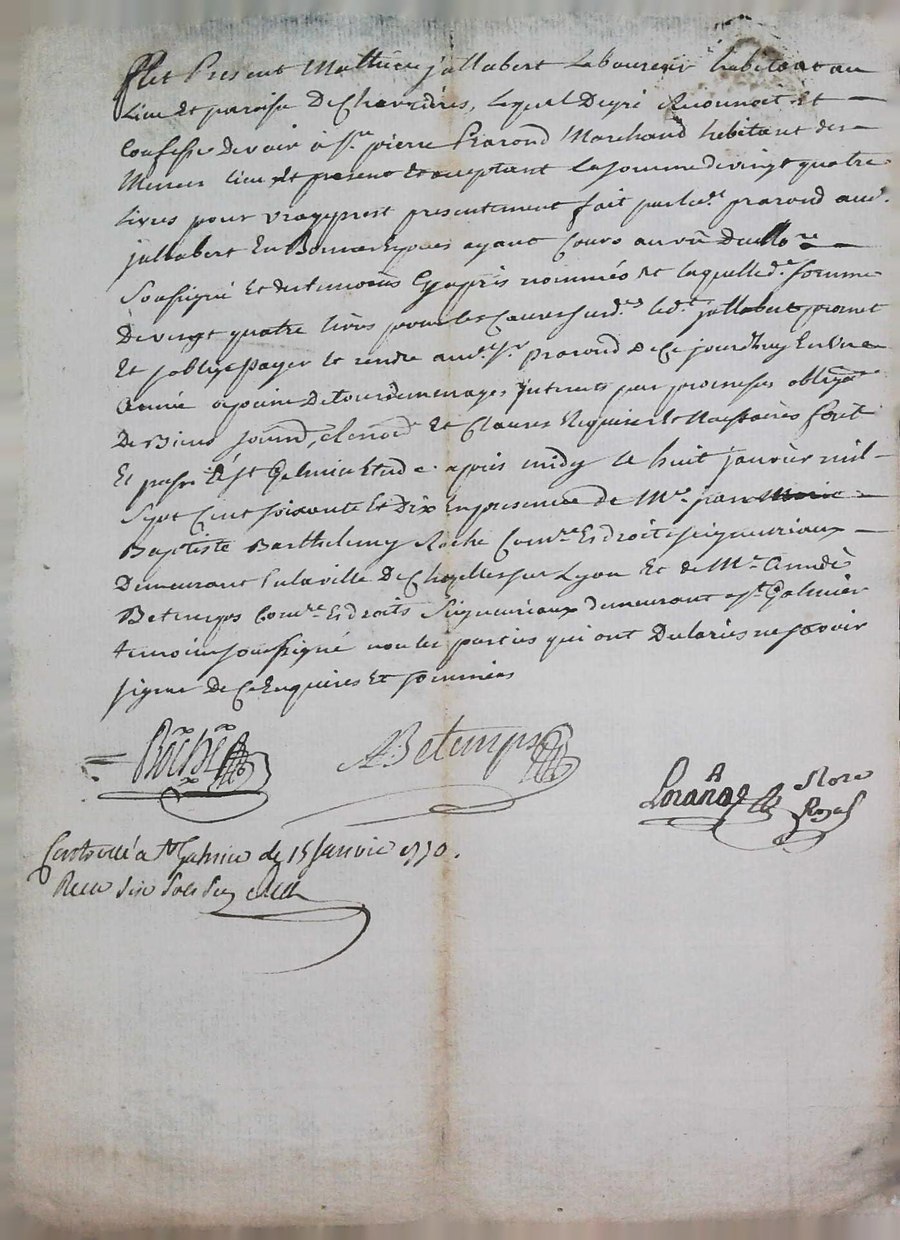 fut Present Mathieu jallabert Laboureur habitant au
Lieu et paroisse De Chevrières, lequel De gré Reconnoit et
Confesse devoir à Sr. pierre Prarond Marchand hebitant des
Mesmes lieu et present et acceptant la somme de vingt quatre
livres pour vray prest presentement fait par led. prarond aud.
jallabert En Bonnes Espèces ayant Cours au vu Du No.re
Soussigné Et des temoins Cy après nommés & laquelle d. somme
De vingt quatre livres pour les Causes sus d. led. jallabert promet
Et s'oblige payer et rendre aud. Sr. prarond De Ce jourdhuy En Une
Année a peine De tous Domenages, Interets par promesses oblig.on
De Biens soumd., Renond. Et Clauses Requises Et Necessaires fait
Et passé A St Galmier Etude après midy le huit janvier mil
Sept Cent soixante Et Dix En presence de Mr. jean Marie
Baptiste Barthelemy Roche Com.re Es droits seigneuriaux
Demeurant En la ville De Chazelles sur Lyon Et de Mr. André
Betemps Com.re Es droits Seigneuriaux demeurant a St. Galmier
temoins soussigné non les parties qui ont Declarées ne sçavoir
signer De Ce Enquises Et sommées
Roche
A Betemps
Nore
Royal
Controllé a St Galmier le 15 Janvier 1770.
Recu six sols six